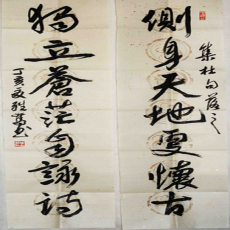 側身天地更懷古
集杜句落之
獨立蒼茫自詠詩
丁亥夏